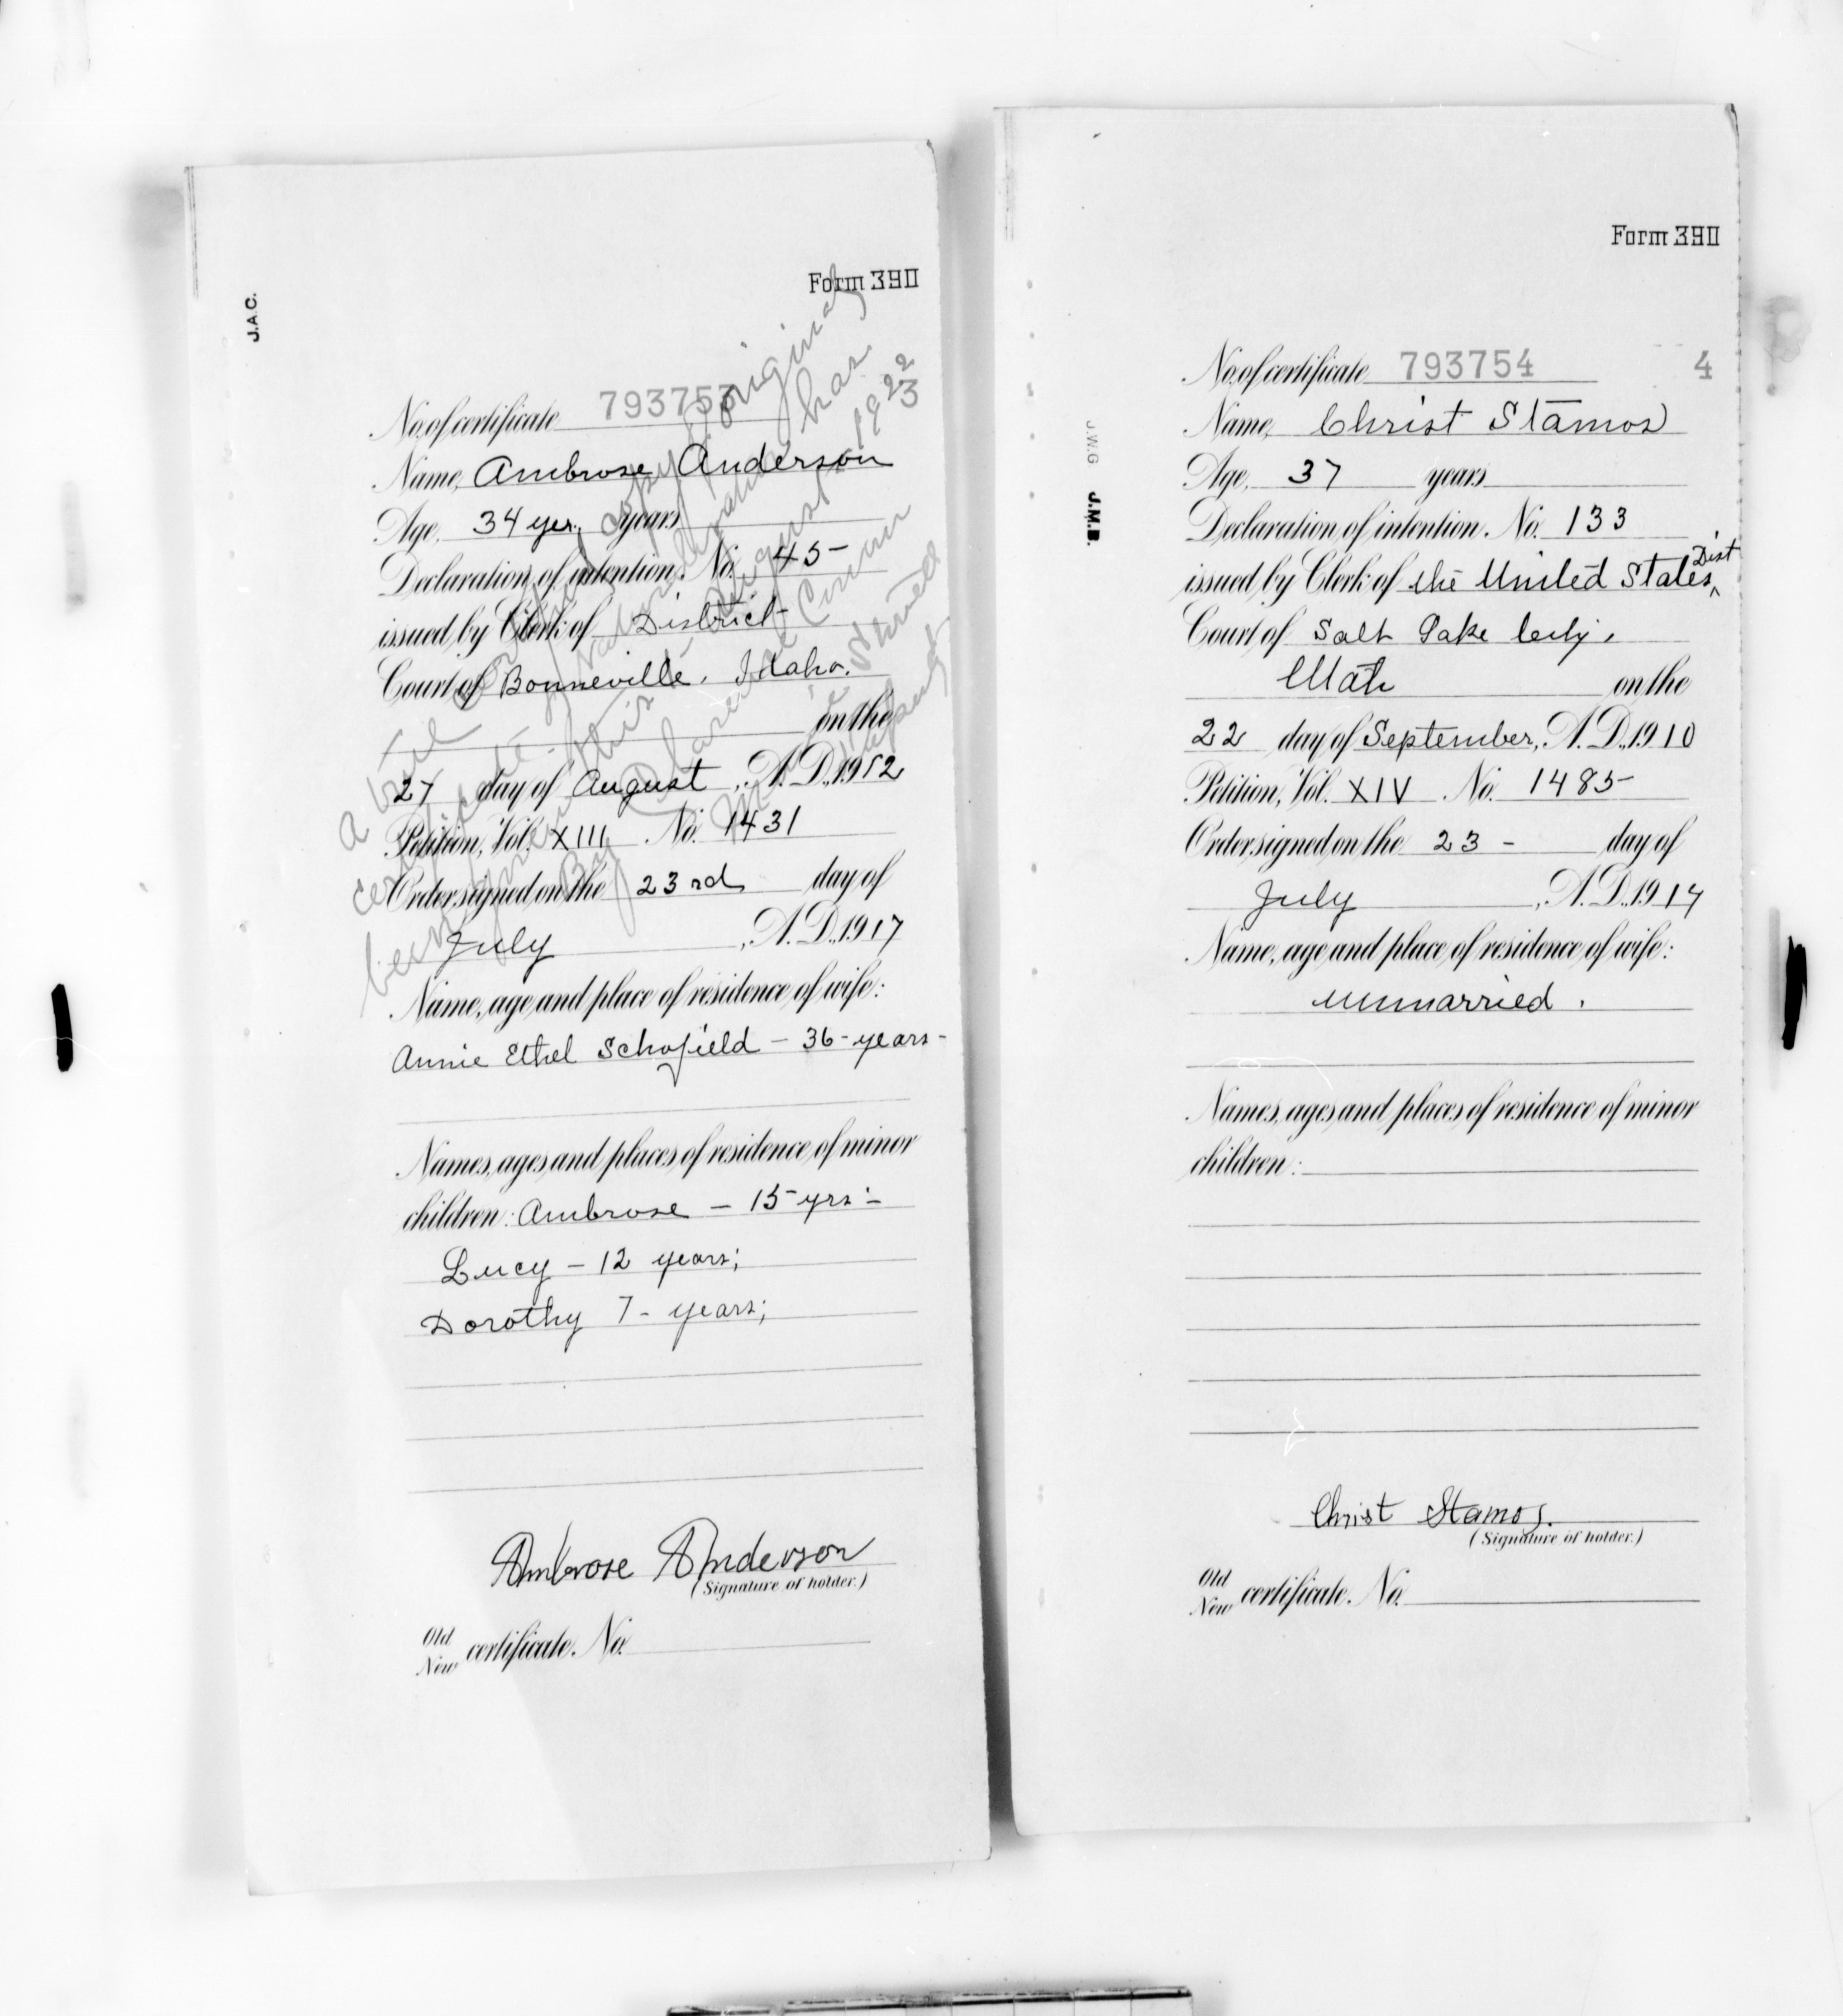 J.A.C.
Form 390
No. of certificate 793753
Name, Ambrose Anderson
Age, 34 yrs. years
Declaration of intention, No. 45
issued by Clerk of District
Court of Bonneville, Idaho.
on the
27 day of August, A.D., 1912
Petition, Vol. XIII No. 1431
Order signed on the 23rd day of
July, A.D., 1917
Name, age and place of residence of wife:
Annie Ethel Schofield - 36-years-
Names, ages and places of residence of minor
children: Ambrose - 15 yrs:-
Lucy - 12 years;
Dorothy 7- years;
Ambrose Anderson
(Signature of holder.)
Old
New certificate. No.
a true copy original
certificate naturalization has
been this August 1922
23
By
J.W.G J.M.B.
Form 390
No. of certificate 793754 4
Name, Christ Stamos
Age, 37 years
Declaration of intention. No. 133
issued by Clerk of the United States Dist
Court of Salt Lake City,
Utah on the
22 day of September, A.D., 1910
Petition, Vol. XIV No. 1485
Order signed on the 23- day of
July, A.D., 1917
Name, age and place of residence of wife:
unmarried.
Names, ages and places of residence of minor
children:
Christ Stamos.
(Signature of holder.)
Old
New certificate. No.